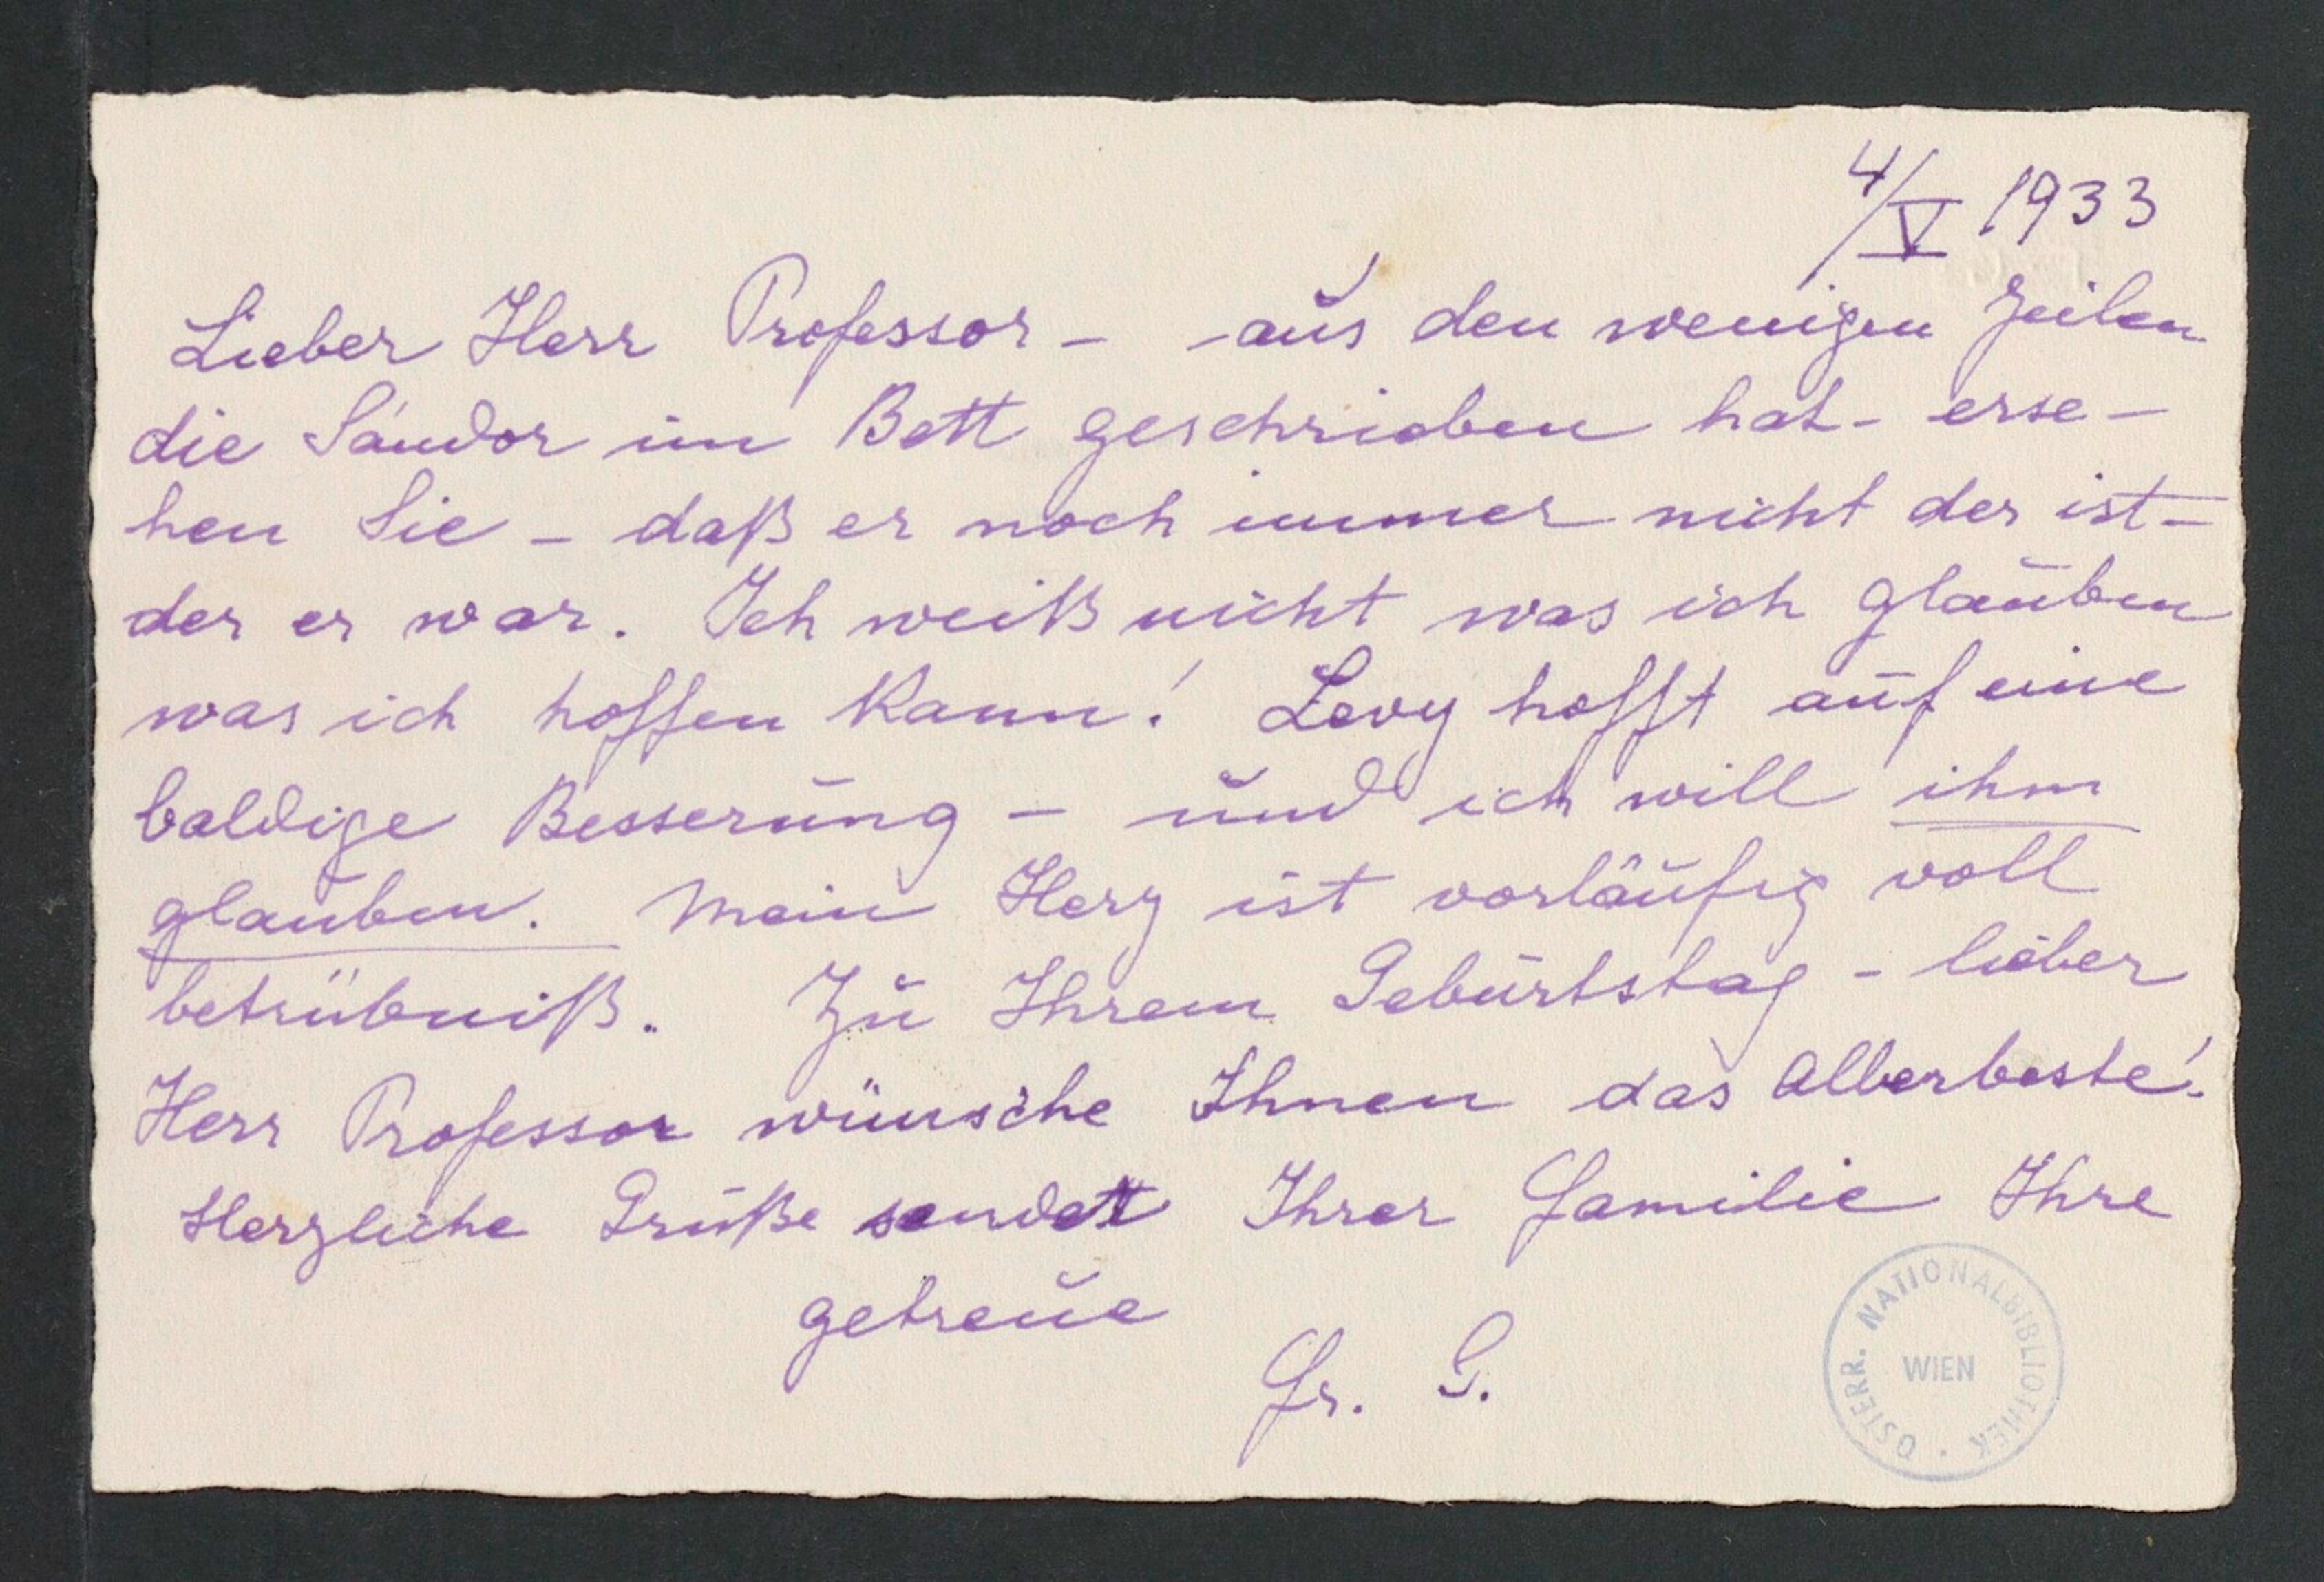 4/V 1933
Lieber Herr Professor - - aus den wenigen Zeilen
die Sándor im Bett geschrieben hat - erse-
hen Sie - daß er noch immer nicht der ist -
der er war. Ich weiß nicht was ich glauben
was ich hoffen kann! Levy hofft auf eine
baldige Besserung - und ich will ihm
glauben. Mein Herz ist vorläufig voll
betrübniß. Zu Ihrem Geburtstag - lieber
Herr Professor wünsche Ihnen das Allerbeste!
Herzliche Grüße sendet Ihrer Familie Ihre
getreue
Fr. G.
ÖSTERR. NATIONALBIBLIOTHEK · WIEN